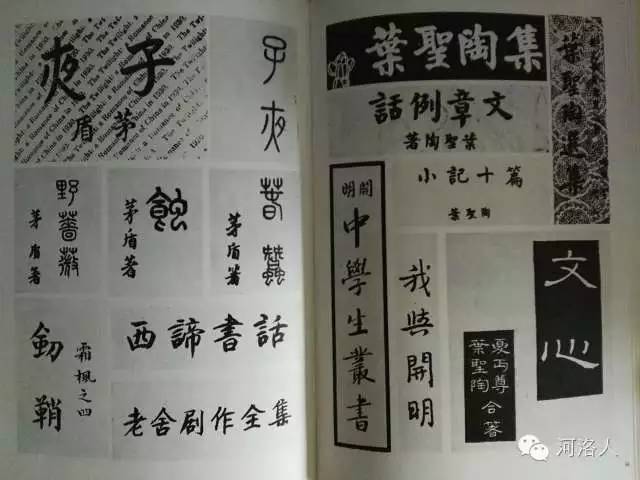 子夜
茅盾
The Twilight: a Romance of China in 1930.
子夜
野薔薇
茅盾著
蝕
茅盾著
春蠶
茅盾著
劒鞘
霜楓之四
西諦書話
老舍剧作全集
葉聖陶集
葉聖陶選集
文章例話
葉聖陶著
小記十篇
葉聖陶
開明
中學生叢書
我與開明
文心
夏丏尊
葉聖陶
合著
河洛人